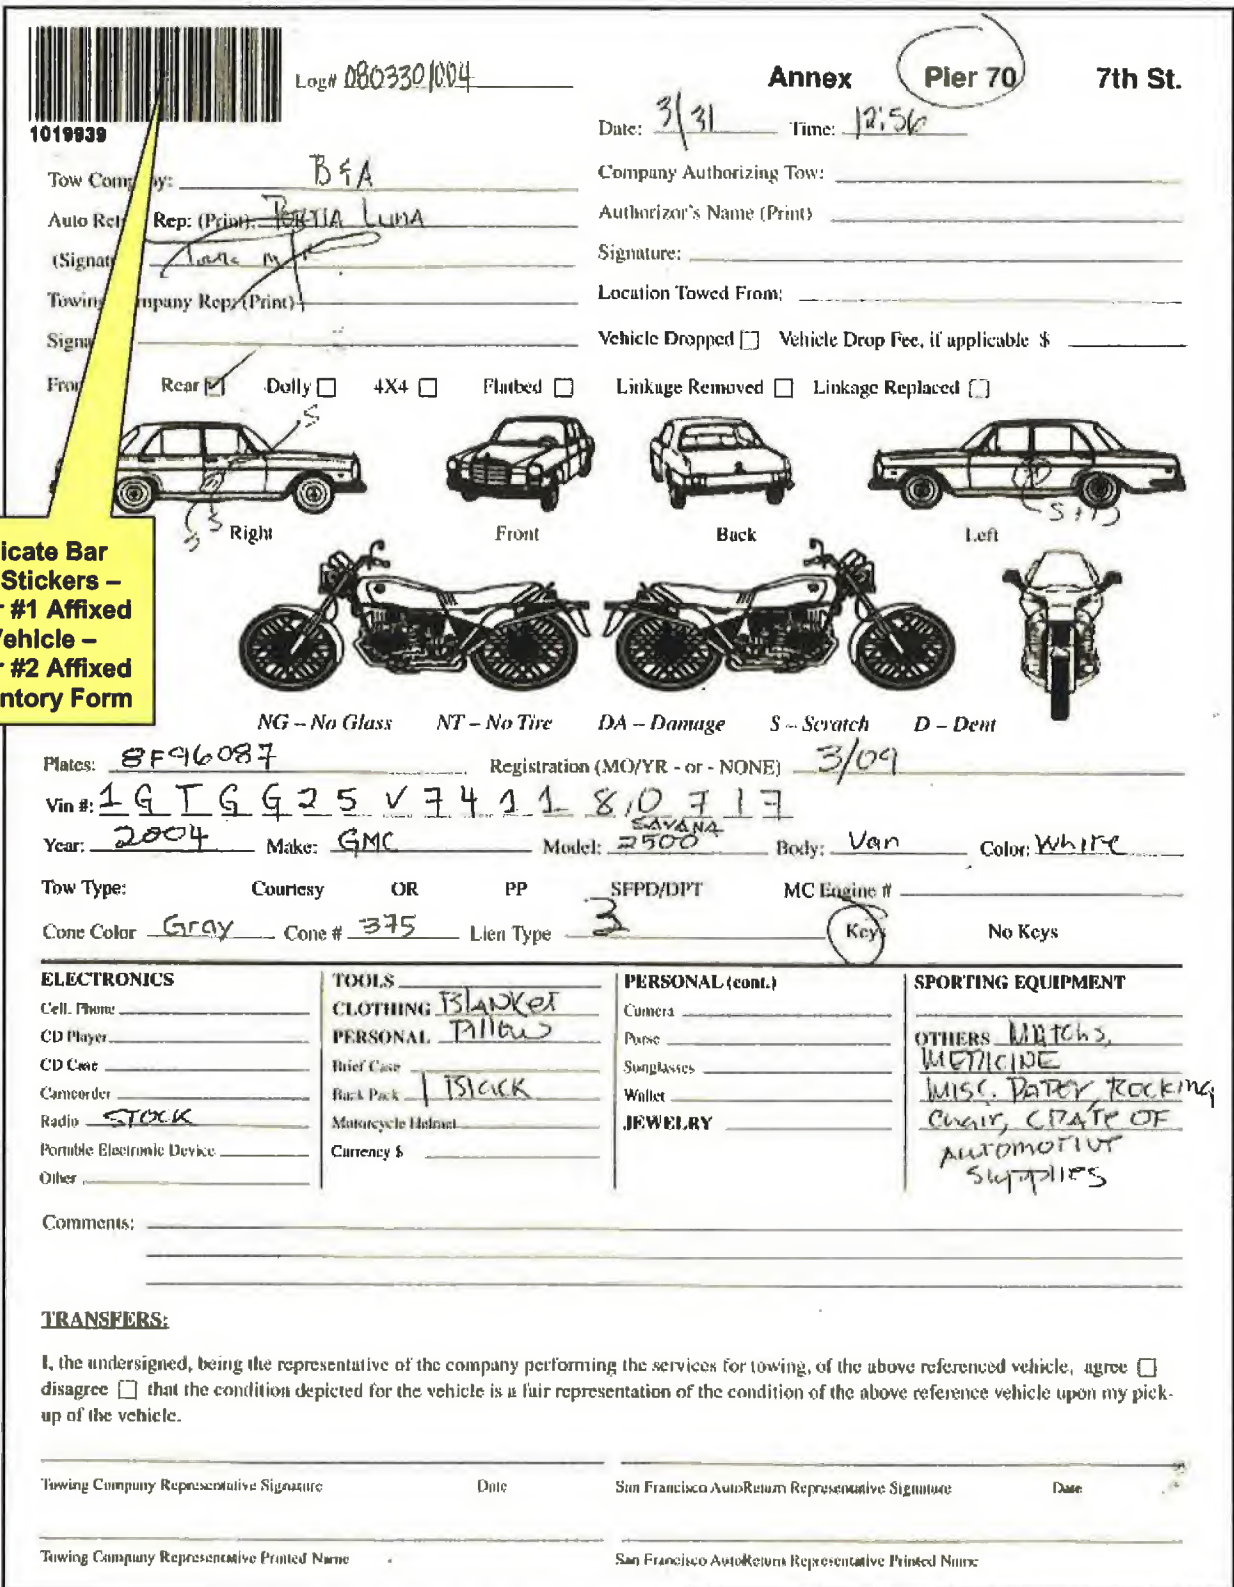 Log# 0803301004
Annex Pier 70 7th St.
1019939
Date: 3/31 Time: 12:56
Tow Comp y: B & A
Company Authorizing Tow:
Auto Ret Rep: (Print): PORTIA LUNA
Authorizor's Name (Print)
(Signat
Signature:
Towin mpany Rep: (Print)
Location Towed From:
Signa
Vehicle Dropped Vehicle Drop Fee, if applicable $
Fron Rear Dolly 4X4 Flatbed Linkage Removed Linkage Replaced
S
S S
S + D
Right Front Back Left
icate Bar
Stickers –
r #1 Affixed
Vehicle –
r #2 Affixed
ntory Form
NG – No Glass NT – No Tire DA – Damage S – Scratch D – Dent
Plates: 8F96087 Registration (MO/YR - or - NONE) 3/09
Vin #: 1GTGG25V741180717
Year: 2004 Make: GMC Model: SAVANA 2500 Body: Van Color: White
Tow Type: Courtesy OR PP SFPD/DPT MC Engine #
Cone Color Gray Cone # 375 Lien Type 3 Keys No Keys
ELECTRONICS TOOLS PERSONAL (cont.) SPORTING EQUIPMENT
Cell. Phone CLOTHING Blanket Camera
CD Player PERSONAL Pillows Purse OTHERS Matchs,
CD Case Brief Case Sunglasses MEDICINE
Camcorder Back Pack 1 Black Wallet MISC. PAPER, ROCKING
Radio STOCK Motorcycle Helmet JEWELRY Chair, CRATE OF
Portable Electronic Device Currency $ AUTOMOTIVE
Other Supplies
Comments:
TRANSFERS:
I, the undersigned, being the representative of the company performing the services for towing, of the above referenced vehicle, agree
disagree that the condition depicted for the vehicle is a fair representation of the condition of the above reference vehicle upon my pick-
up of the vehicle.
Towing Company Representative Signature Date San Francisco AutoReturn Representative Signature Date
Towing Company Representative Printed Name San Francisco AutoReturn Representative Printed Name